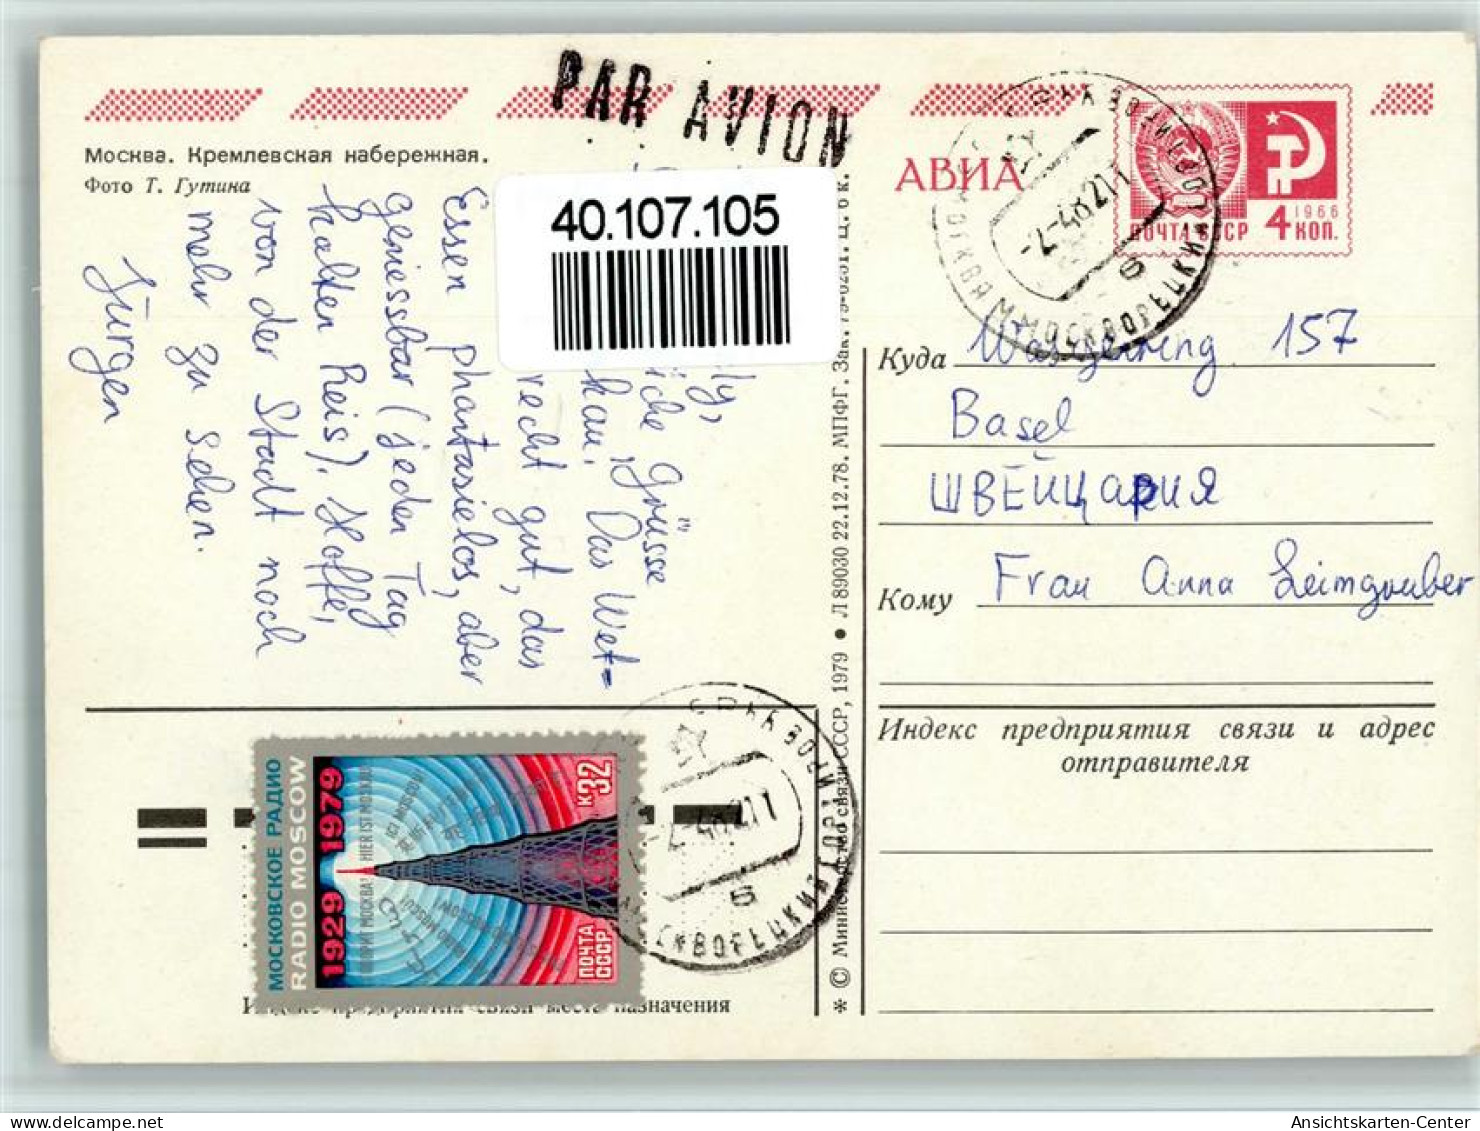 PAR AVION
Москва. Кремлевская набережная.
Фото Т. Гутина
40.107.105
АВИА
ПОЧТА СССР
1966
4 КОП.
ly,
iche Grüsse
kau. Das Wet-
recht gut, das
Essen phantasielos, aber
geniessbar (jeden Tag
halten Reis). Hoffe,
von der Stadt noch
mehr zu sehen.
Jürgen
Куда 157
Basel
ШВЕЙЦАРИЯ
Кому Frau Anna Leimgruber
Индекс предприятия связи и адрес
отправителя
МОСКОВСКОЕ РАДИО
RADIO MOSCOW
1929 1979
ГОВОРИТ МОСКВА! HIER IST MOSKAU
ПОЧТА
СССР
К32
Индекс предприятия связи места назначения
* © Министерство связи СССР, 1979 • Л 89030 22.12.78. МПФГ. Зак. 79-6251. Ц. 6 к.
Ansichtskarten-Center